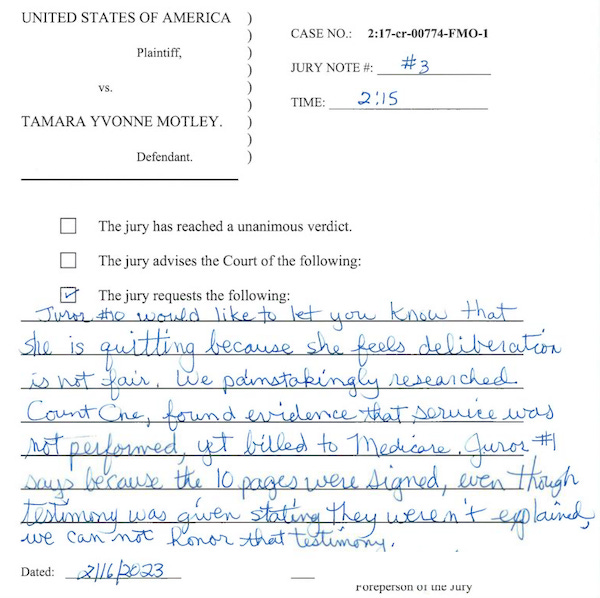 UNITED STATES OF AMERICA )
)
Plaintiff, )
)
vs. )
)
TAMARA YVONNE MOTLEY. )
)
Defendant. )
CASE NO.: 2:17-cr-00774-FMO-1
JURY NOTE #: #3
TIME: 2:15
The jury has reached a unanimous verdict.
The jury advises the Court of the following:
The jury requests the following:
Juror #10 would like to let you know that
she is quitting because she feels deliberation
is not fair. We painstakingly researched
Count One, found evidence that service was
not performed, yet billed to Medicare. Juror #1
says because the 10 pages were signed, even though
testimony was given stating they weren't explained,
we can not honor that testimony.
Dated: 2/16/2023
Foreperson of the Jury